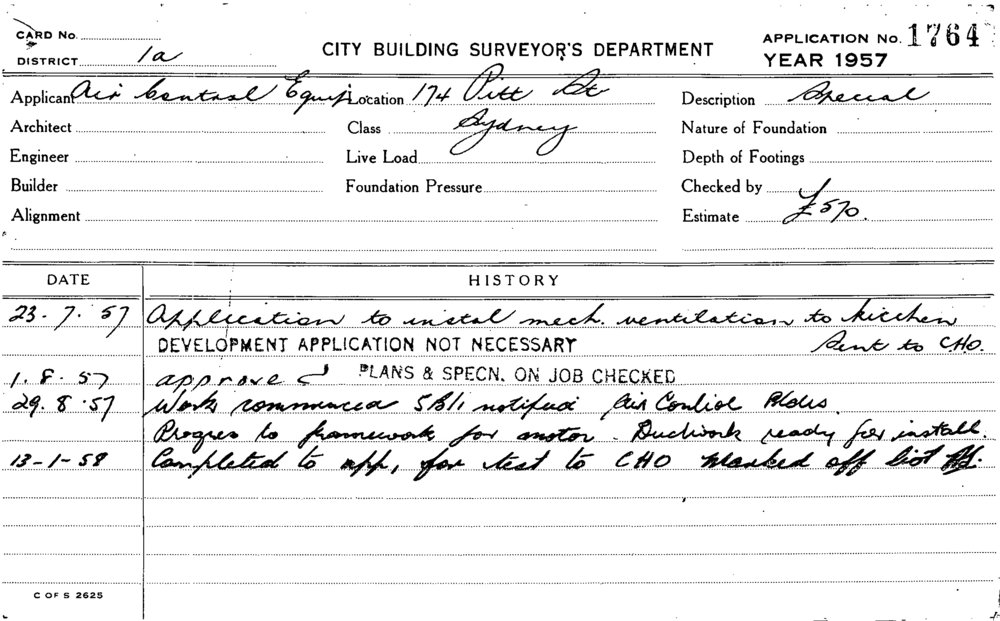 CARD No.
DISTRICT 1a
CITY BUILDING SURVEYOR'S DEPARTMENT
APPLICATION No. 1764
YEAR 1957
Applicant Air Control Equip. Location 174 Pitt St Description Special
Architect Class Sydney Nature of Foundation
Engineer Live Load Depth of Footings
Builder Foundation Pressure Checked by
Alignment Estimate £570.
DATE HISTORY
23.7.57 Application to instal mech. ventilation to kitchen
DEVELOPMENT APPLICATION NOT NECESSARY Sent to CHO.
1.8.57 approved PLANS & SPECN. ON JOB CHECKED
29.8.57 Work commenced notified Air Control
Progress to framework for motor. Ductwork ready for install.
13-1-58 Completed to app, for test to CHO Marked off list
C OF S 2625